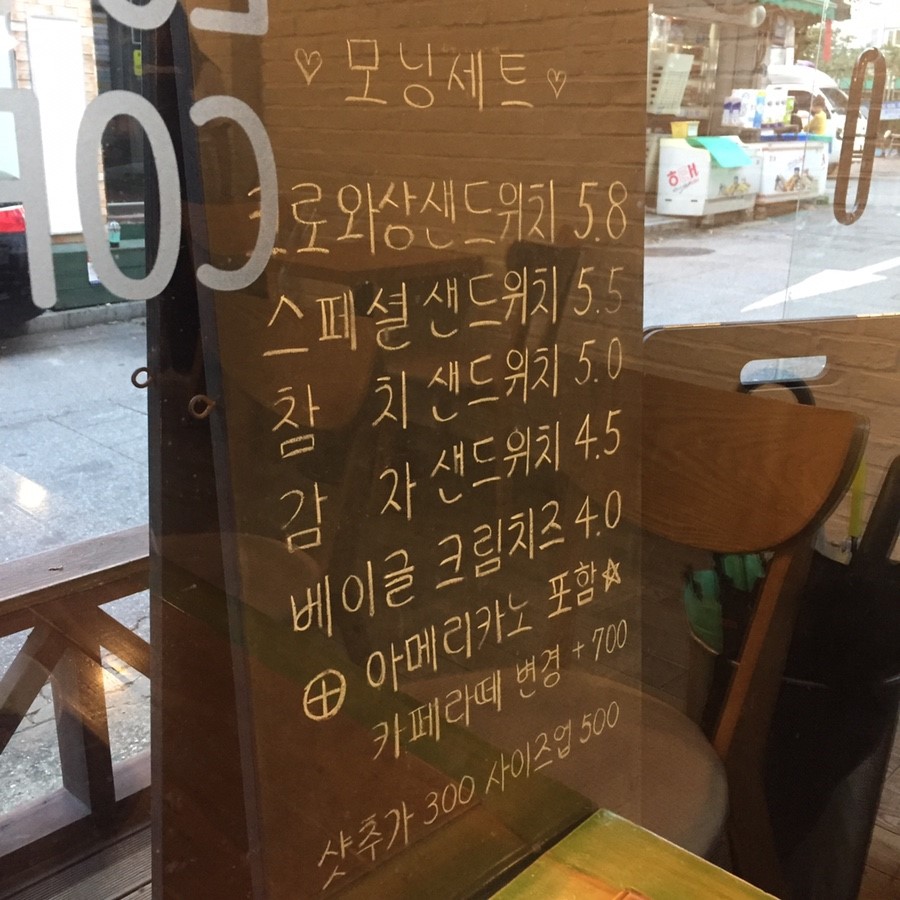 ♡ 모닝세트 ♡
크로와상샌드위치 5.8
스페셜샌드위치 5.5
참 치 샌드위치 5.0
감 자 샌드위치 4.5
베이글 크림치즈 4.0
⊕ 아메리카노 포함☆
카페라떼 변경 +700
샷추가 300 사이즈업 500